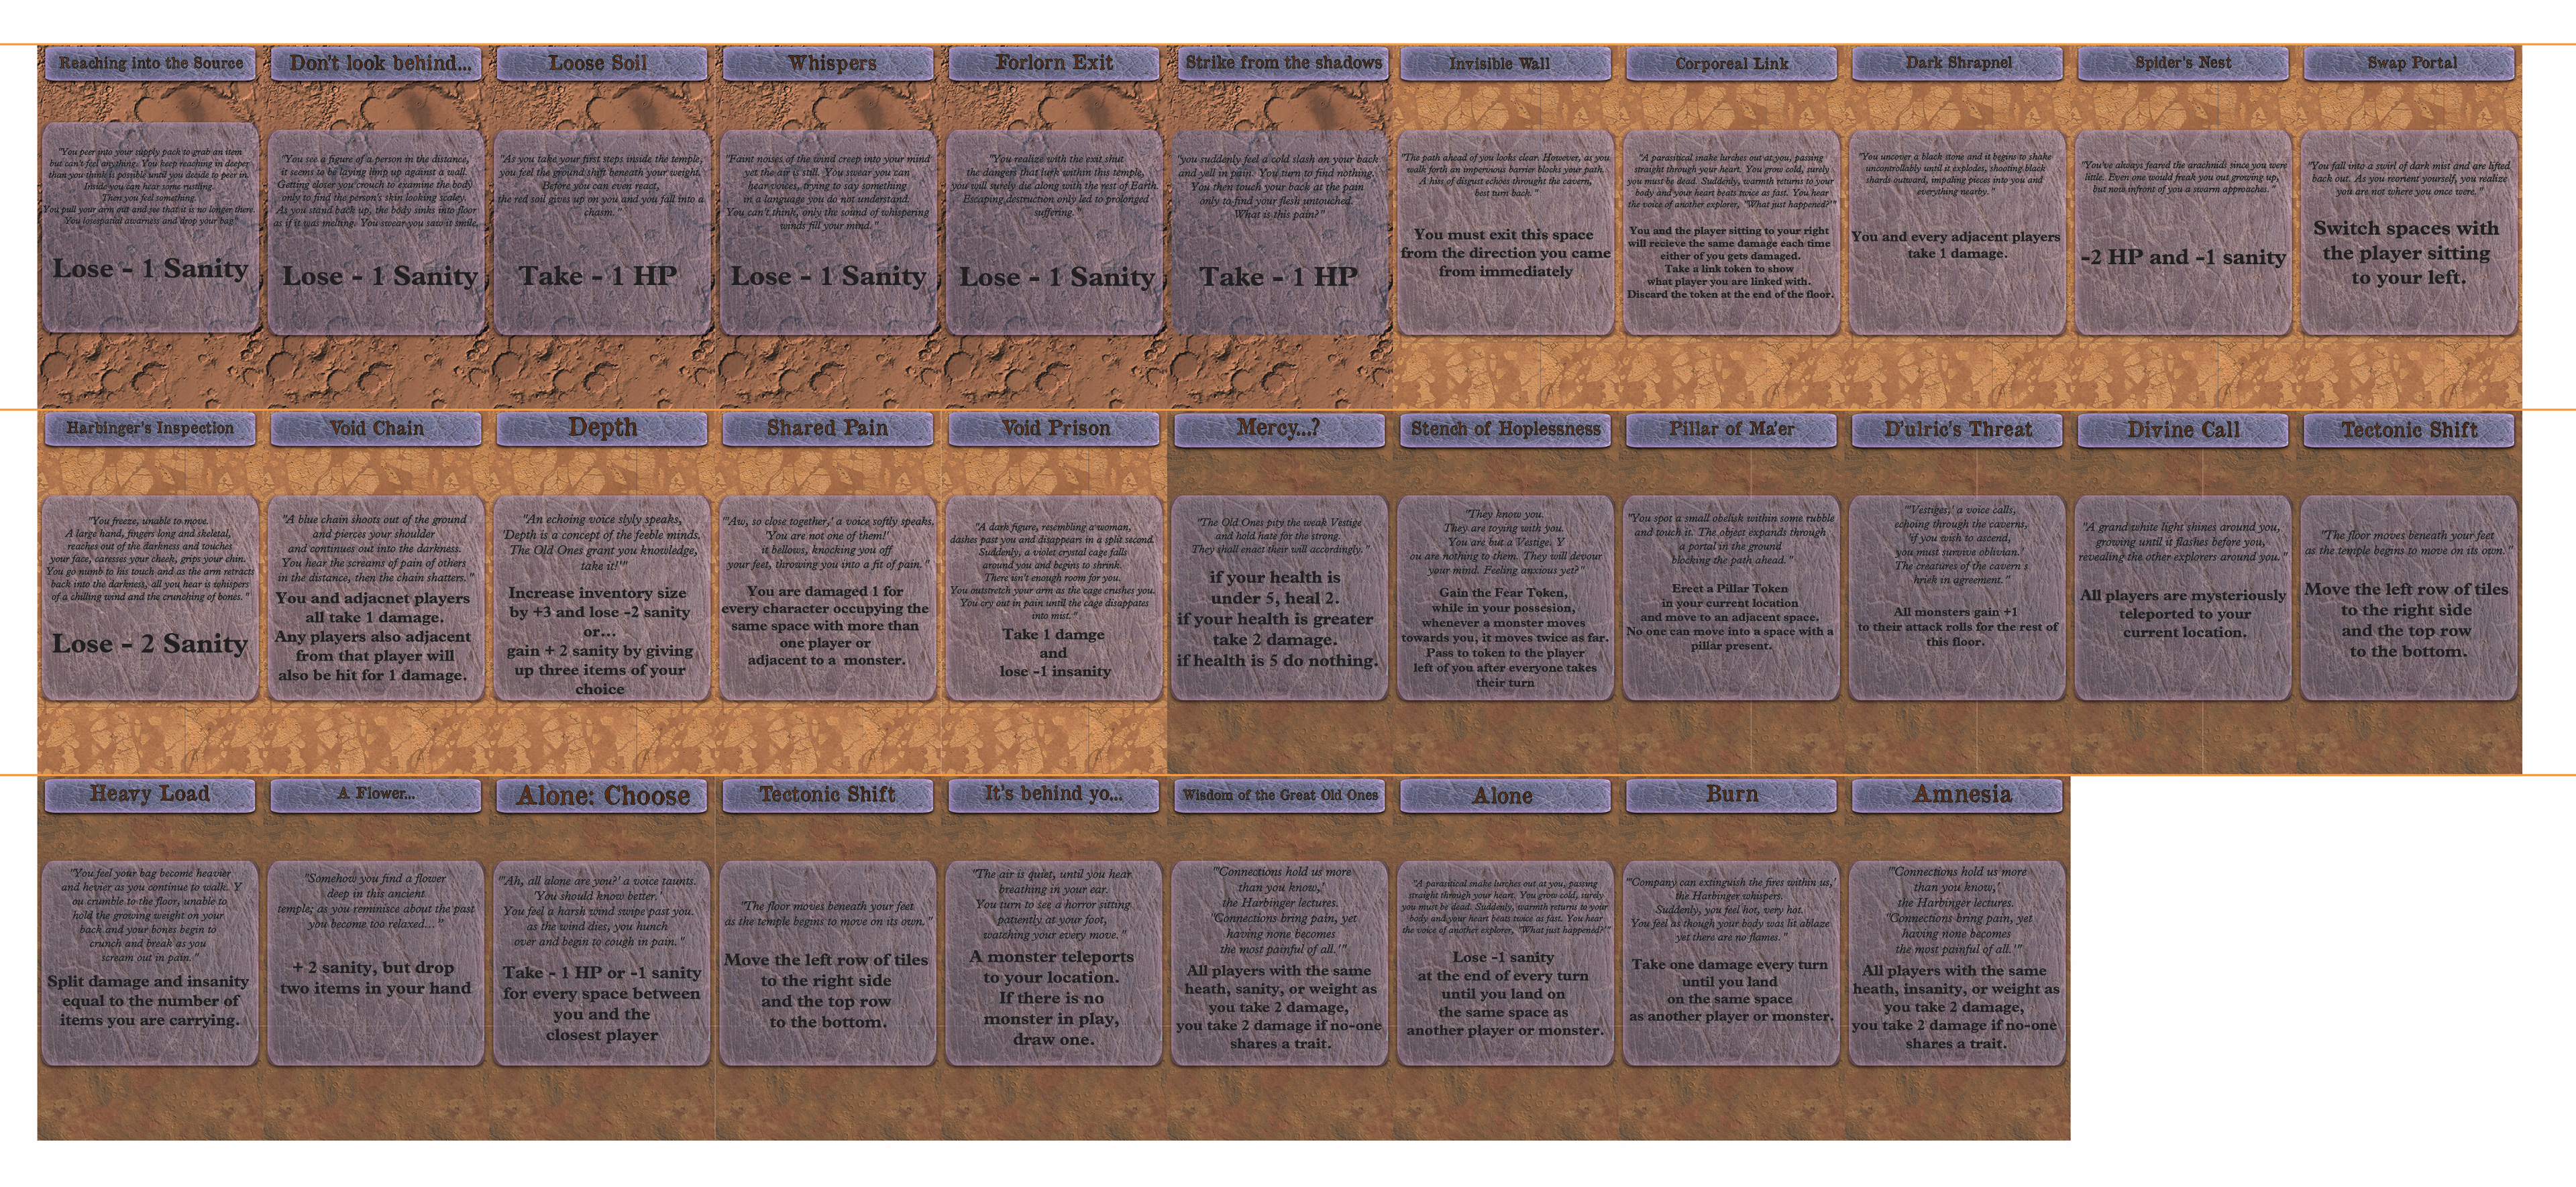 Reaching into the Source
"You peer into your supply pack to grab an item
but can't feel anything. You keep reaching in deeper
than you think is possible until you decide to peer in.
Inside you can hear some rustling.
Then you feel something.
You pull your arm out and see that it is no longer there.
You losespatial awarness and drop your bag."
Lose - 1 Sanity
Don't look behind...
"You see a figure of a person in the distance,
it seems to be laying limp up against a wall.
Getting closer you crouch to examine the body
only to find the person's skin looking scaley.
As you stand back up, the body sinks into floor
as if it was melting. You swear you saw it smile.
Lose - 1 Sanity
Loose Soil
"As you take your first steps inside the temple,
you feel the ground shift beneath your weight.
Before you can even react,
the red soil gives up on you and you fall into a
chasm."
Take - 1 HP
Whispers
"Faint noises of the wind creep into your mind
yet the air is still. You swear you can
hear voices, trying to say something
in a language you do not understand.
You can't think, only the sound of whispering
winds fill your mind."
Lose - 1 Sanity
Forlorn Exit
"You realize with the exit shut
the dangers that lurk within this temple,
you will surely die along with the rest of Earth.
Escaping destruction only led to prolonged
suffering."
Lose - 1 Sanity
Strike from the shadows
"you suddenly feel a cold slash on your back
and yell in pain. You turn to find nothing.
You then touch your back at the pain
only to find your flesh untouched.
What is this pain?"
Take - 1 HP
Invisible Wall
"The path ahead of you looks clear. However, as you
walk forth an impervious barrier blocks your path.
A hiss of disgust echoes throught the cavern,
best turn back."
You must exit this space
from the direction you came
from immediately
Corporeal Link
"A parasitical snake lurches out at you, passing
straight through your heart. You grow cold, surely
you must be dead. Suddenly, warmth returns to your
body and your heart beats twice as fast. You hear
the voice of another explorer, "What just happened?"
You and the player sitting to your right
will recieve the same damage each time
either of you gets damaged.
Take a link token to show
what player you are linked with.
Discard the token at the end of the floor.
Dark Shrapnel
"You uncover a black stone and it begins to shake
uncontrollably until it explodes, shooting black
shards outward, impaling pieces into you and
everything nearby."
You and every adjacent players
take 1 damage.
Spider's Nest
"You've always feared the arachnids since you were
little. Even one would freak you out growing up,
but now infront of you a swarm approaches."
-2 HP and -1 sanity
Swap Portal
"You fall into a swirl of dark mist and are lifted
back out. As you reorient yourself, you realize
you are not where you once were."
Switch spaces with
the player sitting
to your left.
Harbinger's Inspection
"You freeze, unable to move.
A large hand, fingers long and skeletal,
reaches out of the darkness and touches
your face, caresses your cheek, grips your chin.
You go numb to his touch and as the arm retracts
back into the darkness, all you hear is whispers
of a chilling wind and the crunching of bones."
Lose - 2 Sanity
Void Chain
"A blue chain shoots out of the ground
and pierces your shoulder
and continues out into the darkness.
You hear the screams of pain of others
in the distance, then the chain shatters."
You and adjacnet players
all take 1 damage.
Any players also adjacent
from that player will
also be hit for 1 damage.
Depth
"An echoing voice slyly speaks,
'Depth is a concept of the feeble minds.
The Old Ones grant you knowledge,
take it!'"
Increase inventory size
by +3 and lose -2 sanity
or...
gain + 2 sanity by giving
up three items of your
choice
Shared Pain
"'Aw, so close together,' a voice softly speaks,
'You are not one of them!'
it bellows, knocking you off
your feet, throwing you into a fit of pain."
You are damaged 1 for
every character occupying the
same space with more than
one player or
adjacent to a monster.
Void Prison
"A dark figure, resembling a woman,
dashes past you and disappears in a split second.
Suddenly, a violet crystal cage falls
around you and begins to shrink.
There isn't enough room for you.
You outstretch your arm as the cage crushes you.
You cry out in pain until the cage disappates
into mist."
Take 1 damge
and
lose -1 insanity
Mercy...?
"The Old Ones pity the weak Vestige
and hold hate for the strong.
They shall enact their will accordingly."
if your health is
under 5, heal 2.
if your health is greater
take 2 damage.
if health is 5 do nothing.
Stench of Hoplessness
"They know you.
They are toying with you.
You are but a Vestige. Y
ou are nothing to them. They will devour
your mind. Feeling anxious yet?"
Gain the Fear Token,
while in your possesion,
whenever a monster moves
towards you, it moves twice as far.
Pass to token to the player
left of you after everyone takes
their turn
Pillar of Ma'er
"You spot a small obelisk within some rubble
and touch it. The object expands through
a portal in the ground
blocking the path ahead."
Erect a Pillar Token
in your current location
and move to an adjacent space.
No one can move into a space with a
pillar present.
D'ulric's Threat
"'Vestiges,' a voice calls,
echoing through the caverns,
'if you wish to ascend,
you must survive oblivian.'
The creatures of the cavern s
hriek in agreement."
All monsters gain +1
to their attack rolls for the rest of
this floor.
Divine Call
"A grand white light shines around you,
growing until it flashes before you,
revealing the other explorers around you."
All players are mysteriously
teleported to your
current location.
Tectonic Shift
"The floor moves beneath your feet
as the temple begins to move on its own."
Move the left row of tiles
to the right side
and the top row
to the bottom.
Heavy Load
"You feel your bag become heavier
and hevier as you continue to walk. Y
ou crumble to the floor, unable to
hold the growing weight on your
back and your bones begin to
crunch and break as you
scream out in pain."
Split damage and insanity
equal to the number of
items you are carrying.
A Flower...
"Somehow you find a flower
deep in this ancient
temple; as you reminisce about the past
you become too relaxed..."
+ 2 sanity, but drop
two items in your hand
Alone: Choose
"'Ah, all alone are you?' a voice taunts.
'You should know better.'
You feel a harsh wind swipe past you.
as the wind dies, you hunch
over and begin to cough in pain."
Take - 1 HP or -1 sanity
for every space between
you and the
closest player
Tectonic Shift
"The floor moves beneath your feet
as the temple begins to move on its own."
Move the left row of tiles
to the right side
and the top row
to the bottom.
It's behind yo...
"The air is quiet, until you hear
breathing in your ear.
You turn to see a horror sitting
patiently at your foot,
watching your every move."
A monster teleports
to your location.
If there is no
monster in play,
draw one.
Wisdom of the Great Old Ones
"'Connections hold us more
than you know,'
the Harbinger lectures.
'Connections bring pain, yet
having none becomes
the most painful of all.'"
All players with the same
heath, sanity, or weight as
you take 2 damage,
you take 2 damage if no-one
shares a trait.
Alone
"A parasitical snake lurches out at you, passing
straight through your heart. You grow cold, surely
you must be dead. Suddenly, warmth returns to your
body and your heart beats twice as fast. You hear
the voice of another explorer, "What just happened?"
Lose -1 sanity
at the end of every turn
until you land on
the same space as
another player or monster.
Burn
"'Company can extinguish the fires within us,'
the Harbinger whispers.
Suddenly, you feel hot, very hot.
You feel as though your body was lit ablaze
yet there are no flames."
Take one damage every turn
until you land
on the same space
as another player or monster.
Amnesia
"'Connections hold us more
than you know,'
the Harbinger lectures.
'Connections bring pain, yet
having none becomes
the most painful of all.'"
All players with the same
heath, insanity, or weight as
you take 2 damage,
you take 2 damage if no-one
shares a trait.